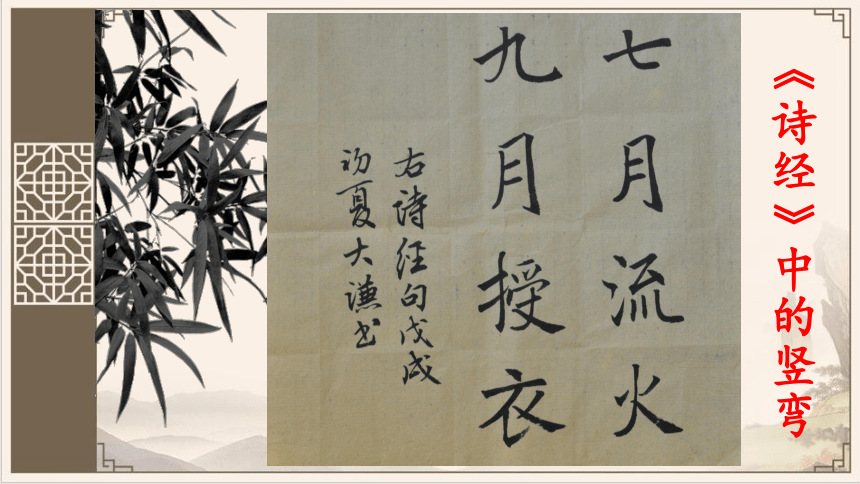 《诗经》中的竖弯
七月流火
九月授衣
右诗经句戊戌
初夏大谦书